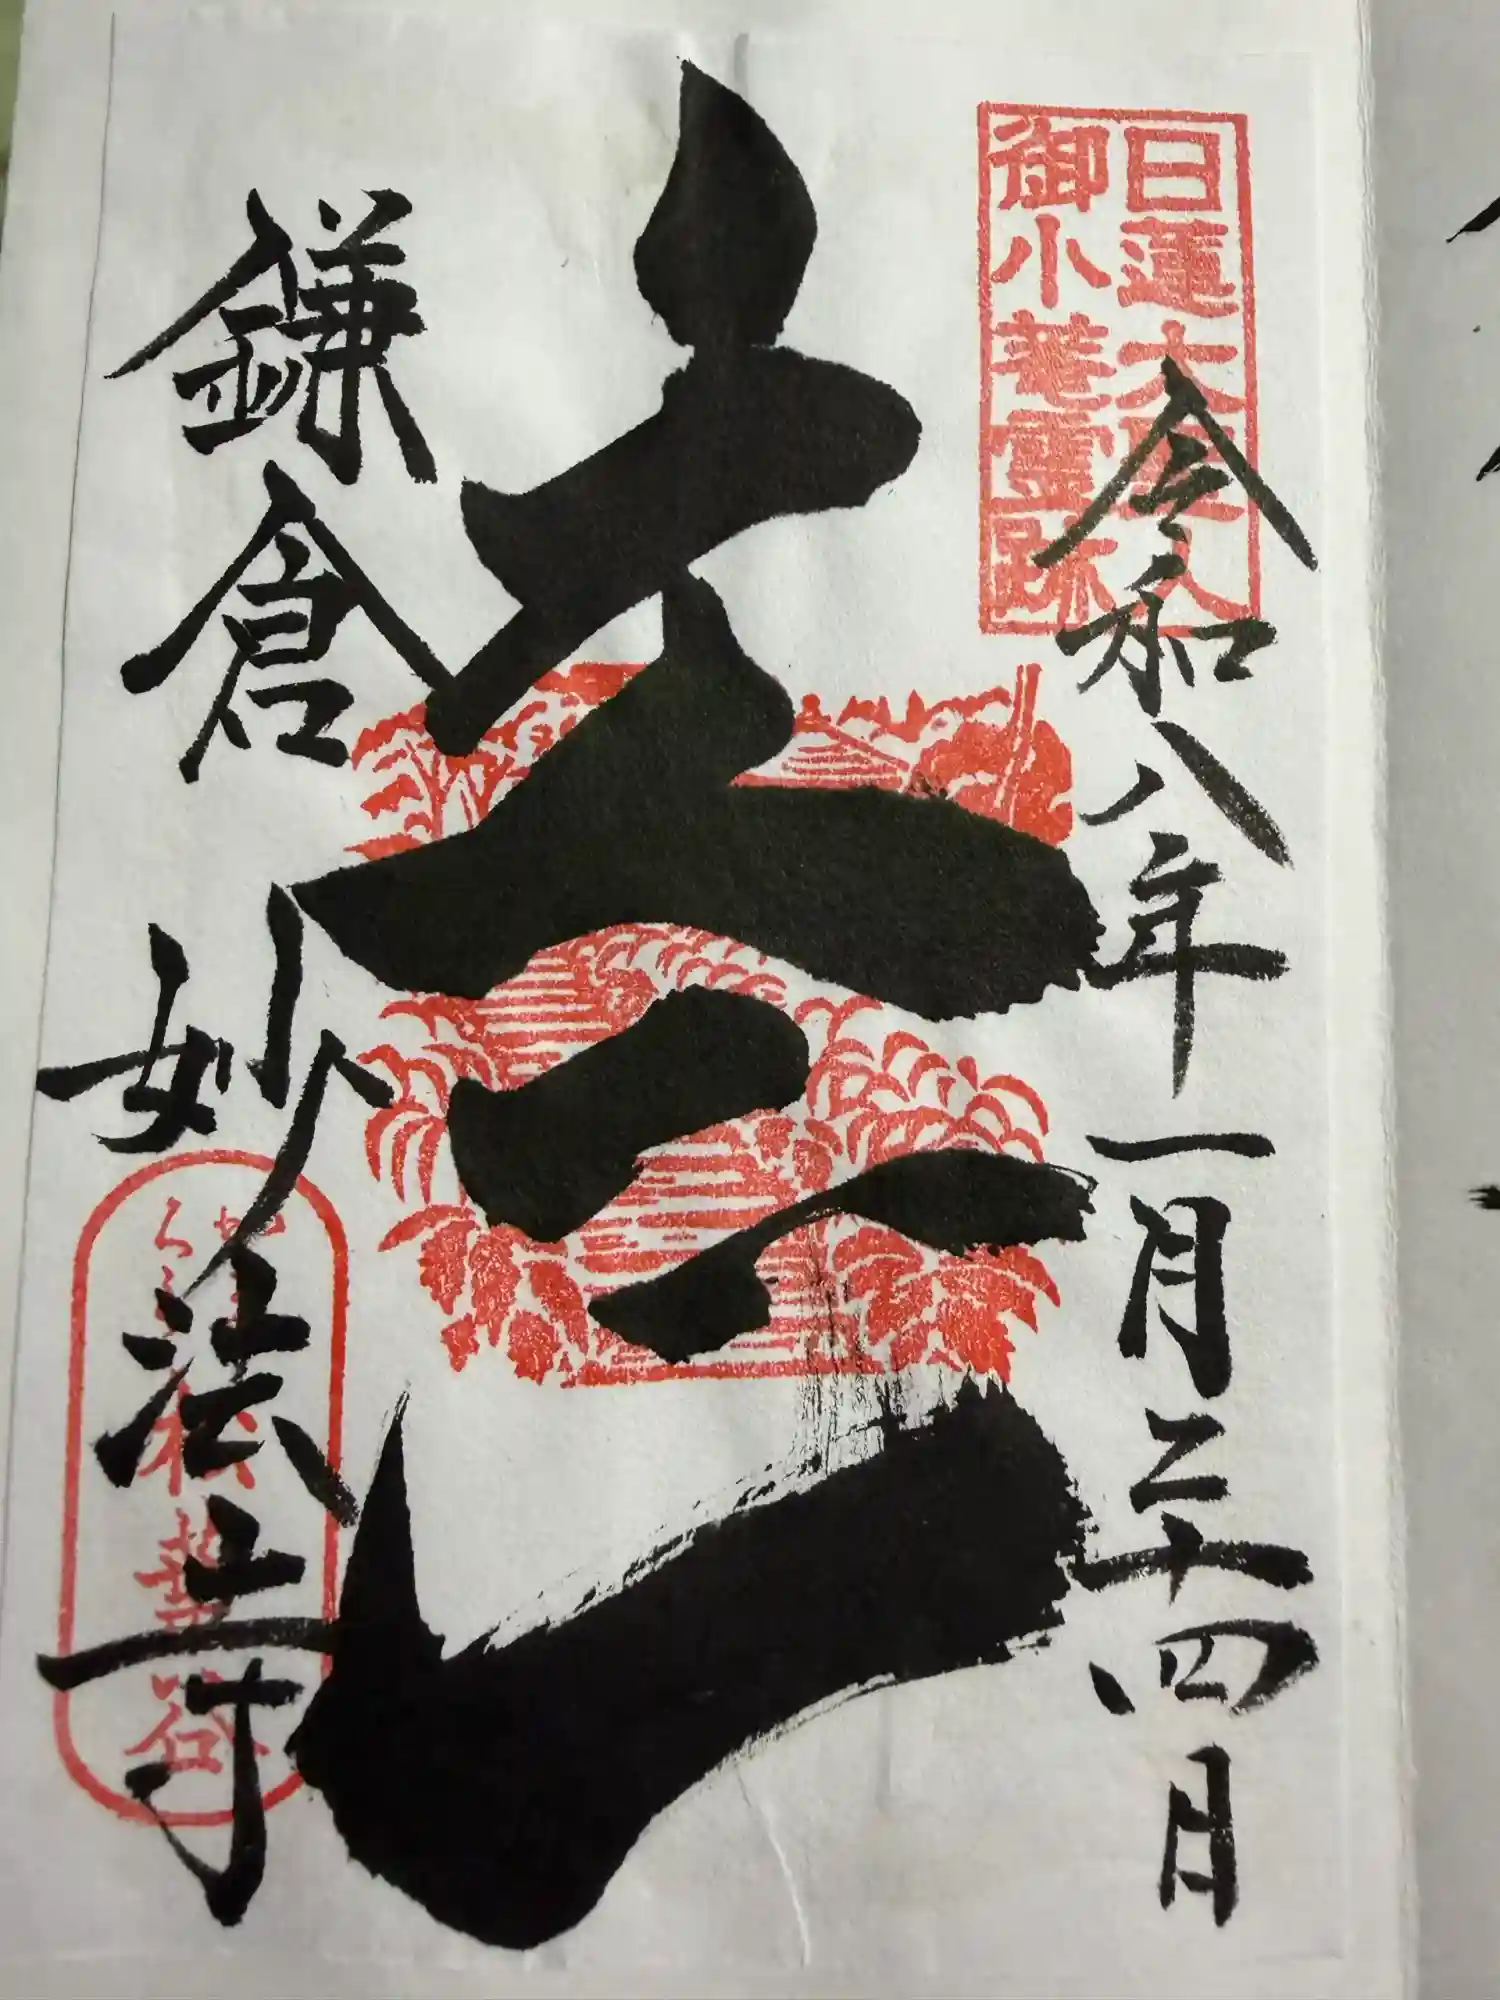 日蓮大聖人
御小菴霊跡
令和八年一月二十四日
鎌倉 妙法寺
松葉谷